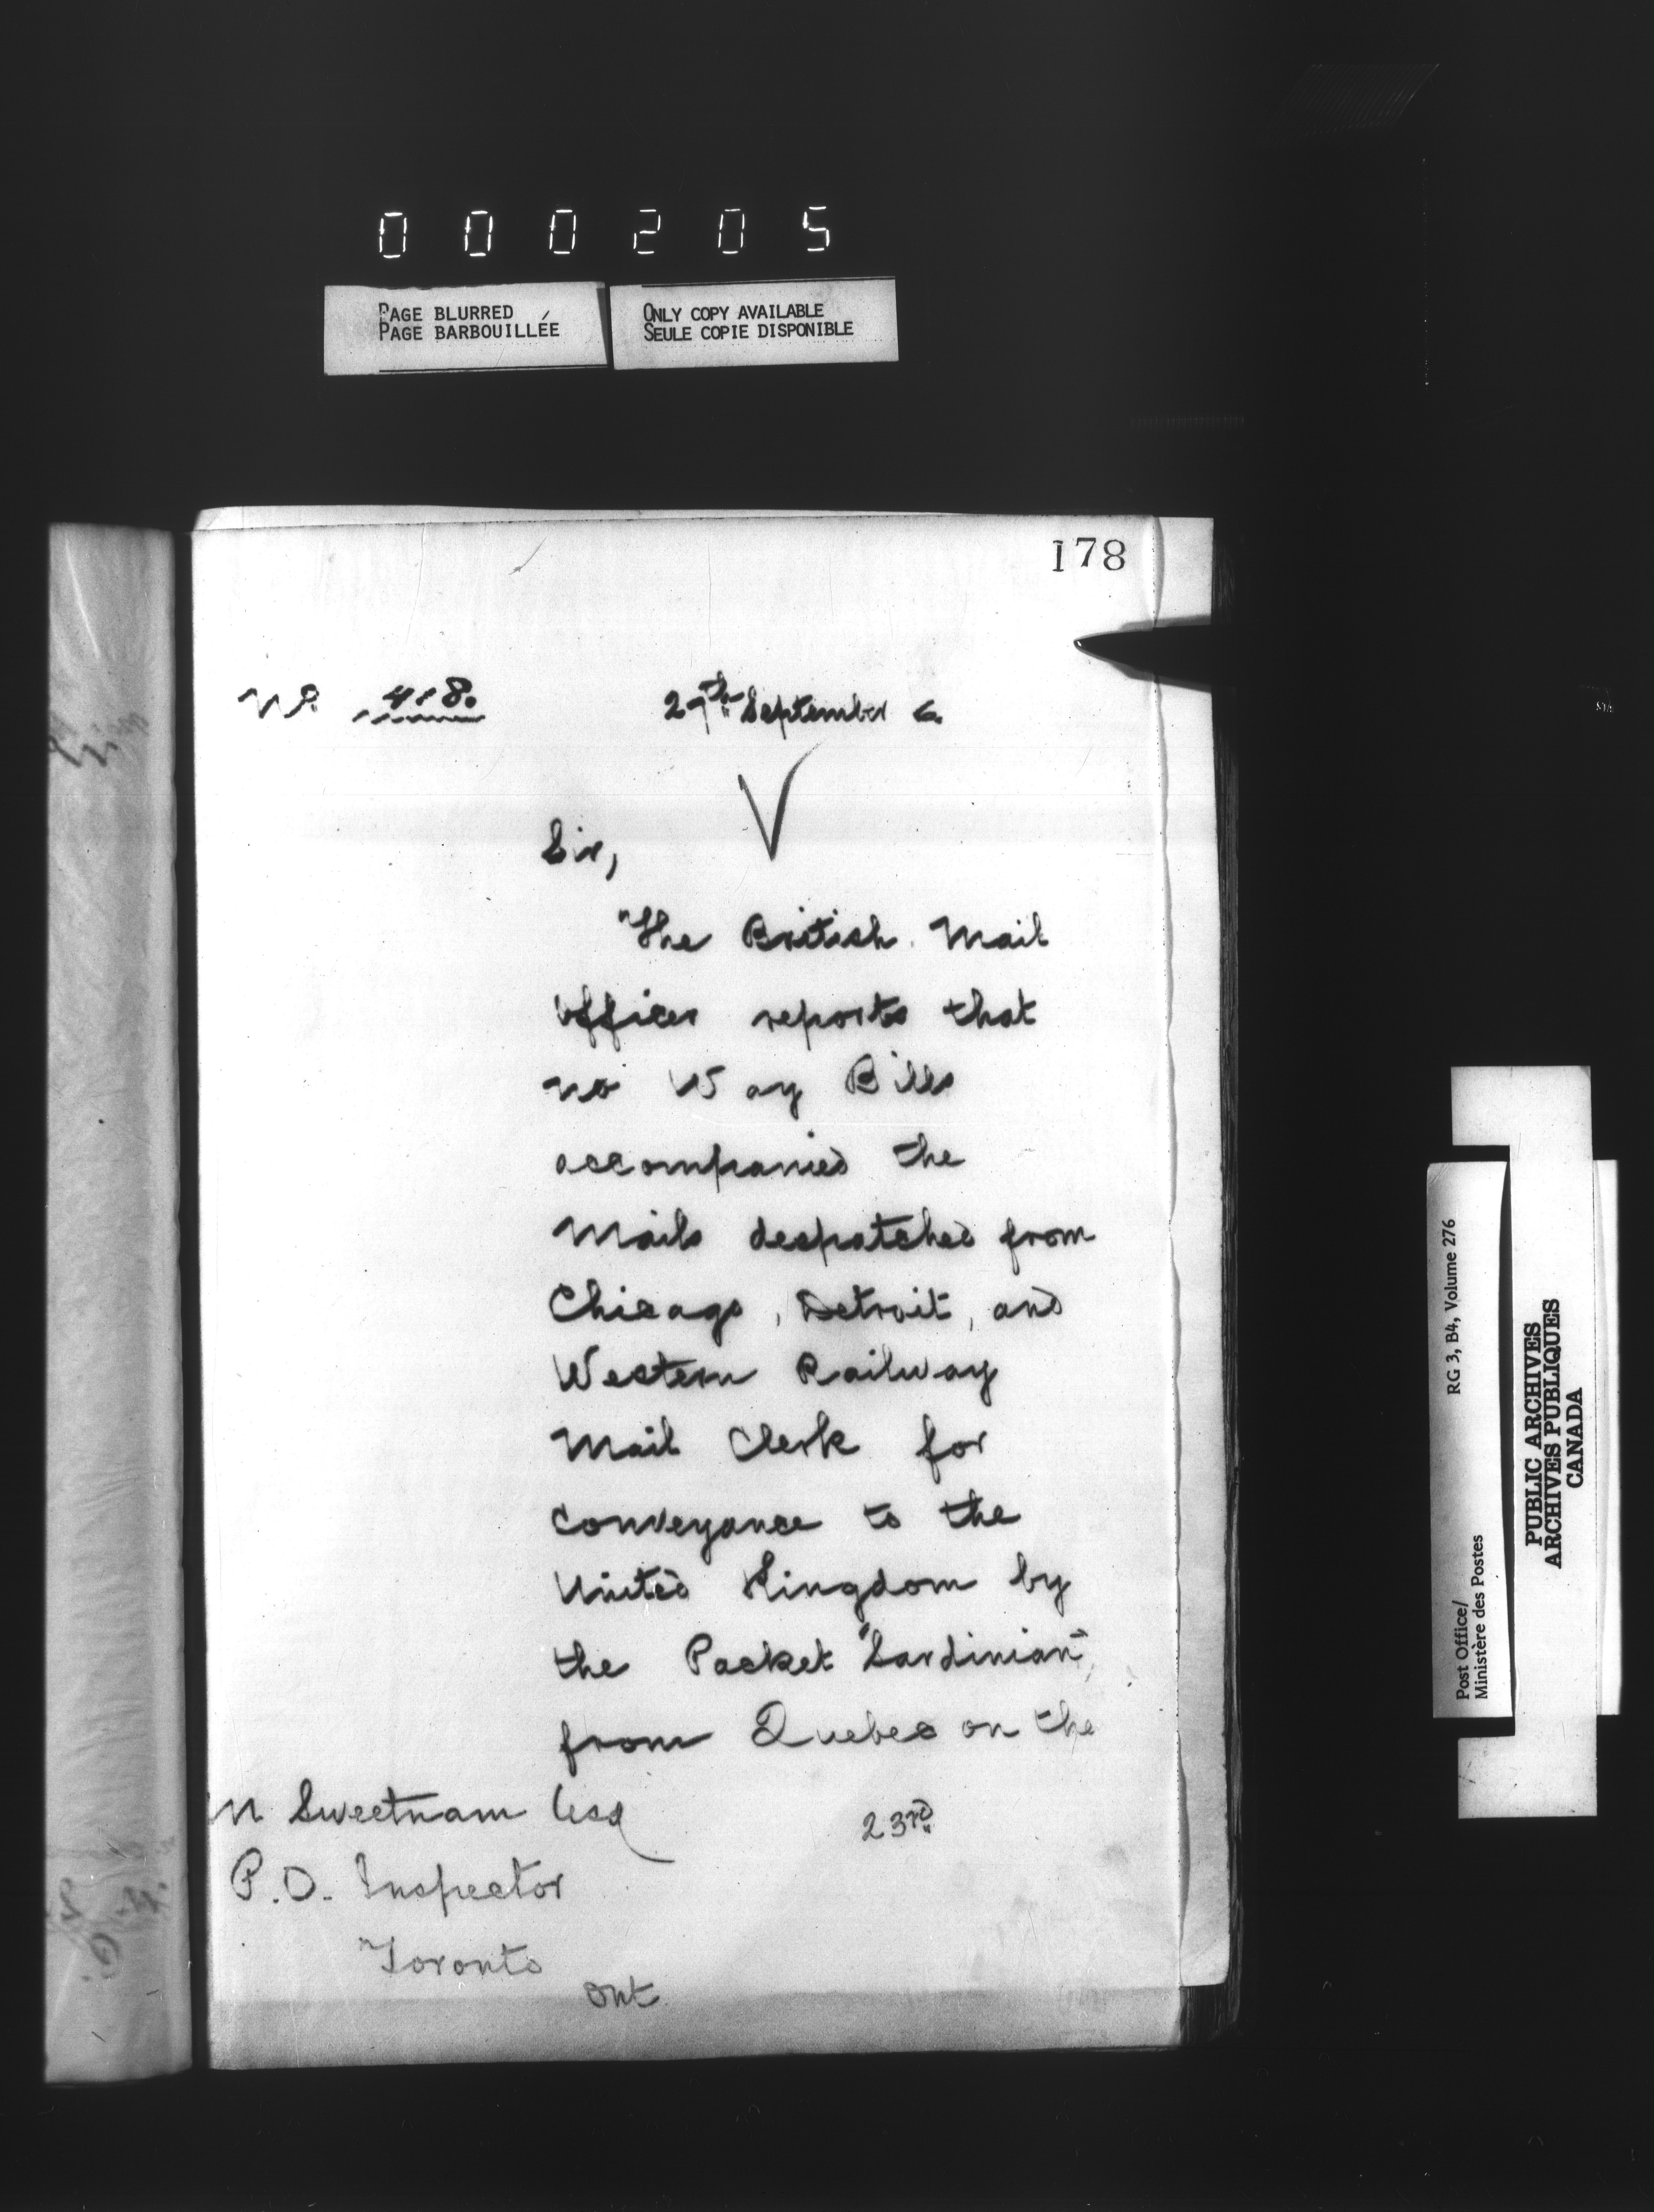 000205
PAGE BLURRED
PAGE BARBOUILLÉE
ONLY COPY AVAILABLE
SEULE COPIE DISPONIBLE
178
No. 418.
29th September 6.
Sir,
The British Mail
Officer reports that
no Way Bills
accompanied the
Mails despatched from
Chicago, Detroit, and
Western Railway
Mail Clerk for
conveyance to the
United Kingdom by
the Packet "Sardinian",
from Quebec on the
23rd
M Sweetnam Esq
P.O. Inspector
Toronto
Ont
RG 3, B4, Volume 276
Post Office/
Ministère des Postes
PUBLIC ARCHIVES
ARCHIVES PUBLIQUES
CANADA